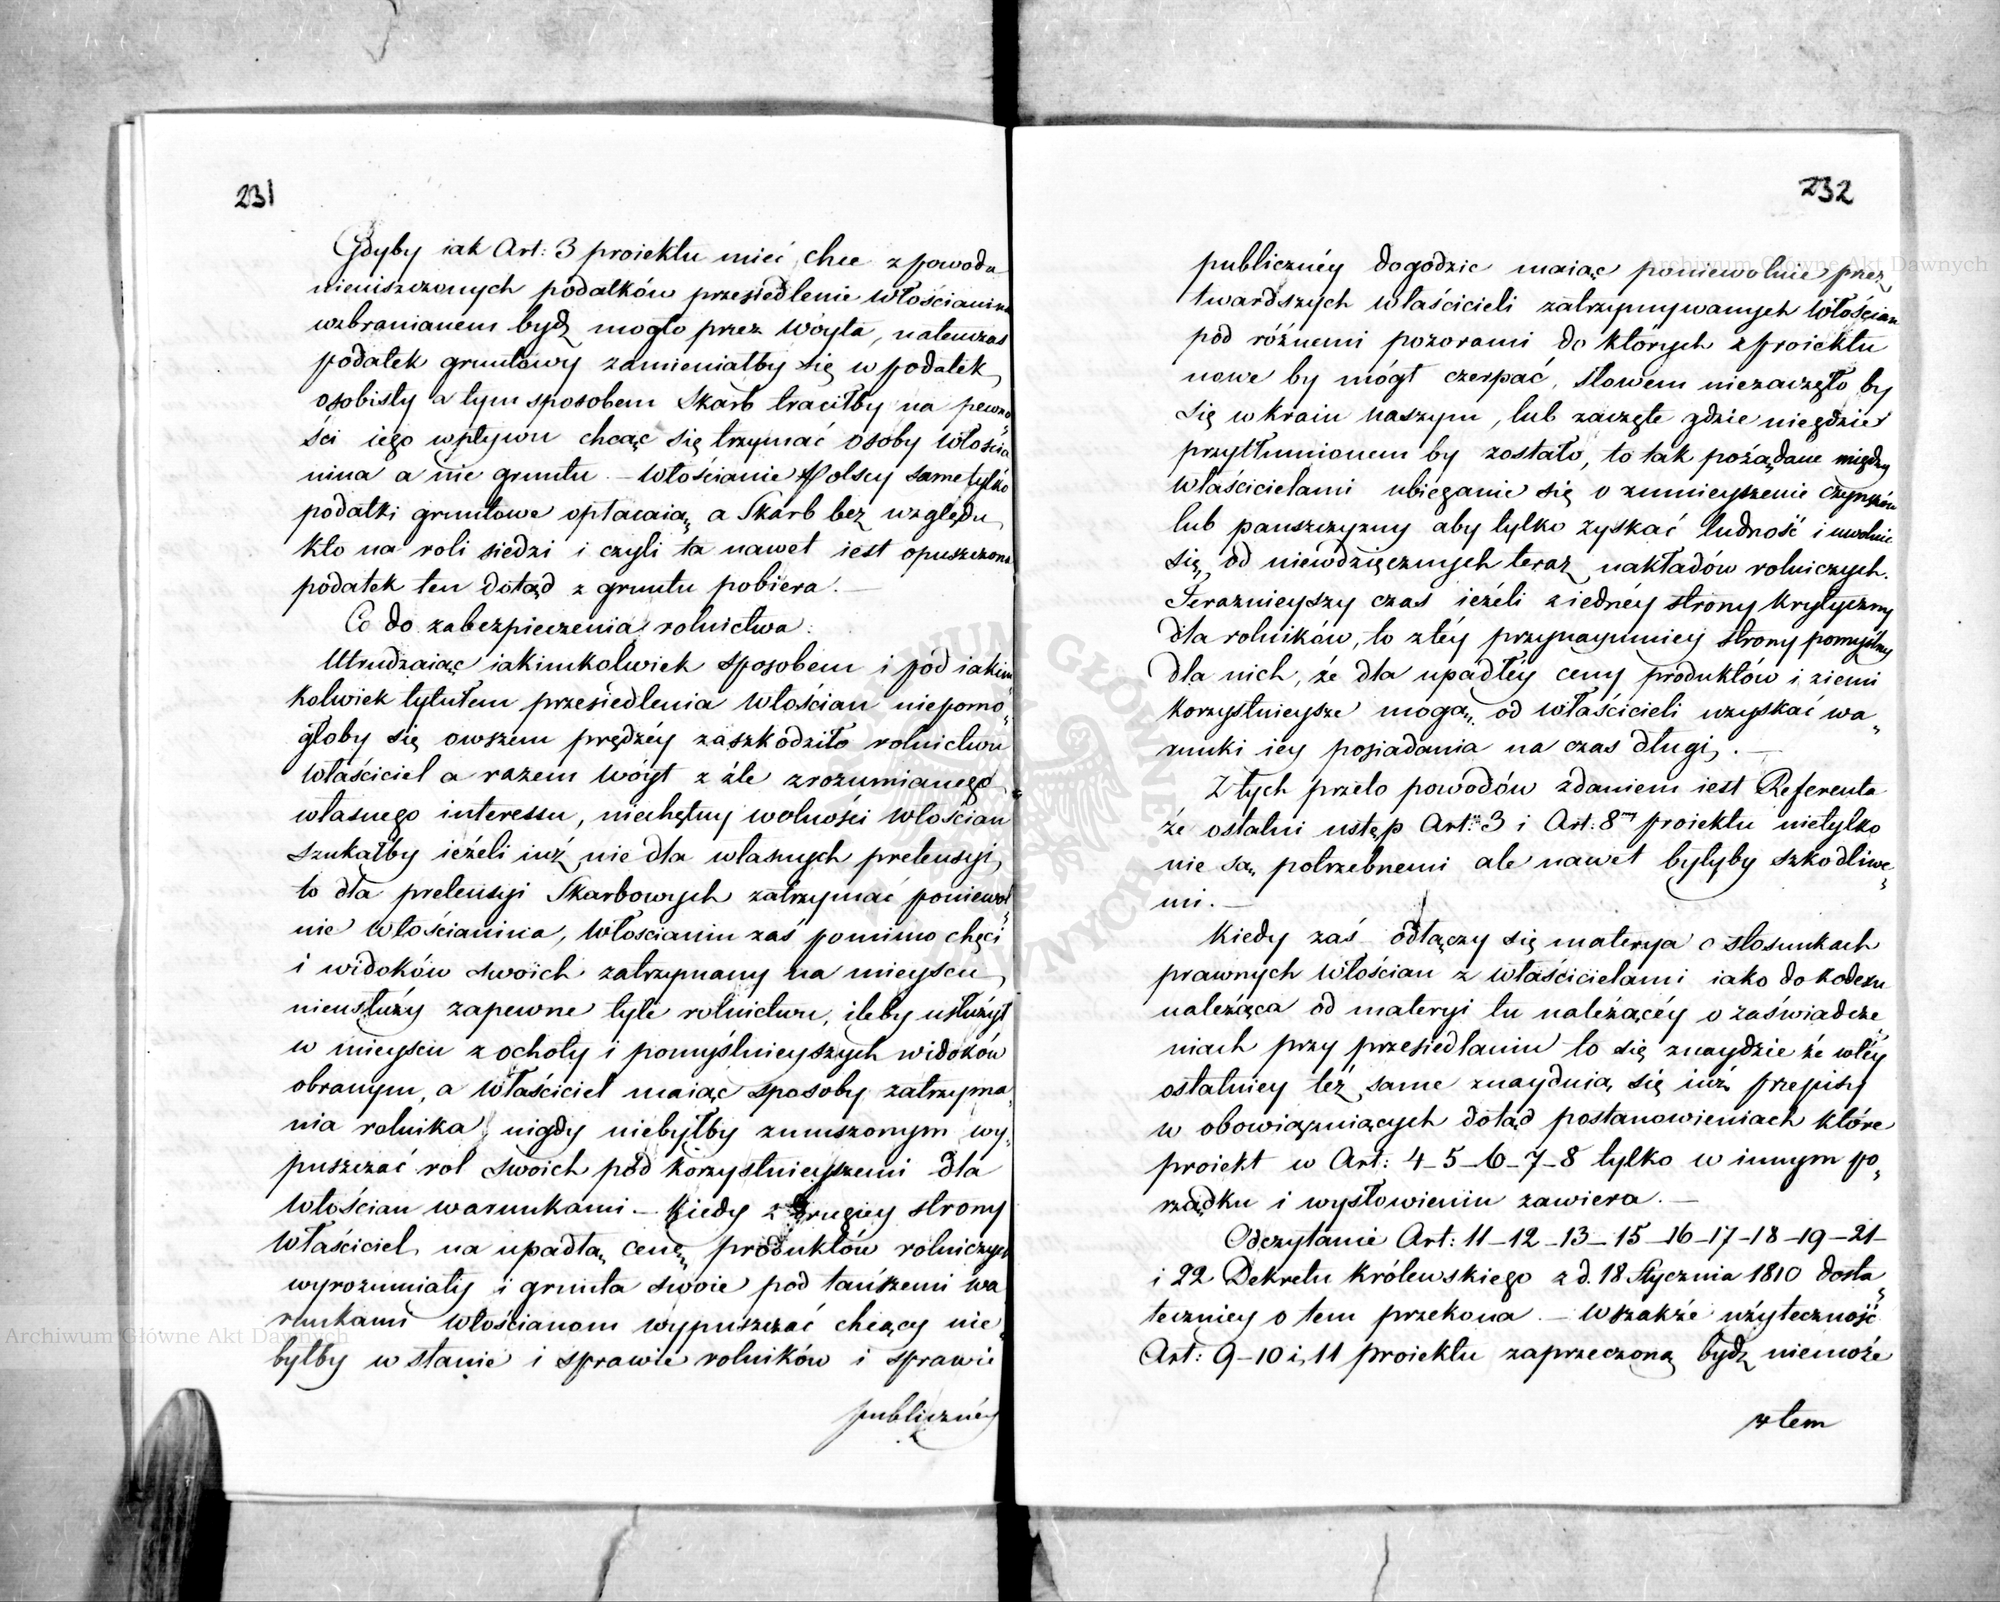 231
Gdyby iak Art: 3 proiektu mieć chce z powodu
nieuiszczonych podatków przesiedlenie włościanina
wzbranianem bydź mogło przez Wóyta, natenczas
podatek gruntowy zamieniałby się w podatek
osobisty a tym sposobem Skarb traciłby na pewno„
ści iego wpływu chcąc się trzymać osoby włościa
nina a nie gruntu. – Włościanie Polscy same tylko
podatki gruntowe opłacaią, a Skarb bez względu
kto na roli siedzi i czyli ta nawet iest opuszczona
podatek ten dotąd z gruntu pobiera. —
Co do zabezpieczenia rolnictwa:
Utrudzaiąc iakimkolwiek sposobem i pod iakim
kolwiek tytułem przesiedlenia Włościan niepomo„
głoby się owszem prędzéy zaszkodziło rolnictwu
Właściciel a razem Wóyt z źle zrozumianego
własnego interessu, niechętny wolności Włościan
szukałby ieżeli iuż nie dla własnych pretensyi,
to dla pretensyi Skarbowych zatrzymać poniewol„
nie Włościanina, Włościanin zaś pomimo chęci
i widoków swoich zatrzymany na mieyscu
niesłuży zapewne tyle rolnictwu, ileby usłużył
w mieyscu z ochoty i pomyślnieyszych widoków
obranym, a Właściciel maiąc sposoby zatrzyma„
nia rolnika, nigdy niebyłby zmuszonym wy„
puszczać rol swoich pod korzystnieyszemi dla
Włościan warunkami. – Kiedy z drugiey strony
Właściciel na upadłą cenę produktów rolniczych
wyrozumiały i grunta swoie pod tańszemi wa
runkami włościanom wypuszczać chcący nie„
byłby w stanie i sprawie rolników i sprawie
publicznéy
232
publicznéy dogodzic maiąc poniewolnie przez
twardszych właścicieli zatrzymywanych Włościan
pod różnemi pozorami do których z proiektu
nowe by mógł czerpać. Słowem niezaczęło by
się w kraiu naszym, lub zaczęte gdzie niegdzie
przytłumionem by zostało, to tak pożądane między
właścicielami ubieganie się o zmnieyszenie czynszów
lub pańszczyzny aby tylko zyskać ludność i uwolnić
się od niewdzięcznych teraz nakładów rolniczych.
Teraznieyszy czas ieżeli z iednéy strony krytyczny
dla rolników, to z téy przynaymniey strony pomyślny
dla nich, że dla upadłéy ceny produktów i ziemi
korzystnieysze mogą od właścicieli uzyskać wa„
runki iey posiadania na czas długi. —
Z tych przeto powodów zdaniem iest Referenta
że ostatni ustęp Art: 3 i Art: 8my proiektu nietylko
nie są potrzebnemi ale nawet byłyby szkodliwe„
mi. —
Kiedy zaś odłączy się materya o stosunkach
prawnych Włościan z właścicielami iako do kodexu
należąca od materyi tu należącéy o zaświadcze„
niach przy przesiedlaniu to się znaydzie że w téy
ostatniey też same znayduią się iuż przepisy
w obowiązuiących dotąd postanowieniach które
proiekt w Art: 4–5–6–7–8 tylko w innym po„
rządku i wysłowieniu zawiera. —
Odczytanie Art: 11–12–13–15–16–17–18–19–21–
i 22 Dekretu Królewskiego z d. 18 Stycznia 1810 dosta„
teczniey o tem przekona. – Wszakże użyteczność
Art: 9–10 i 11 proiektu zaprzeczoną bydź niemoże
z tem
Archiwum Główne Akt Dawnych
Archiwum Główne Akt Dawnych
ARCHIWUM GŁÓWNE AKT DAWNYCH